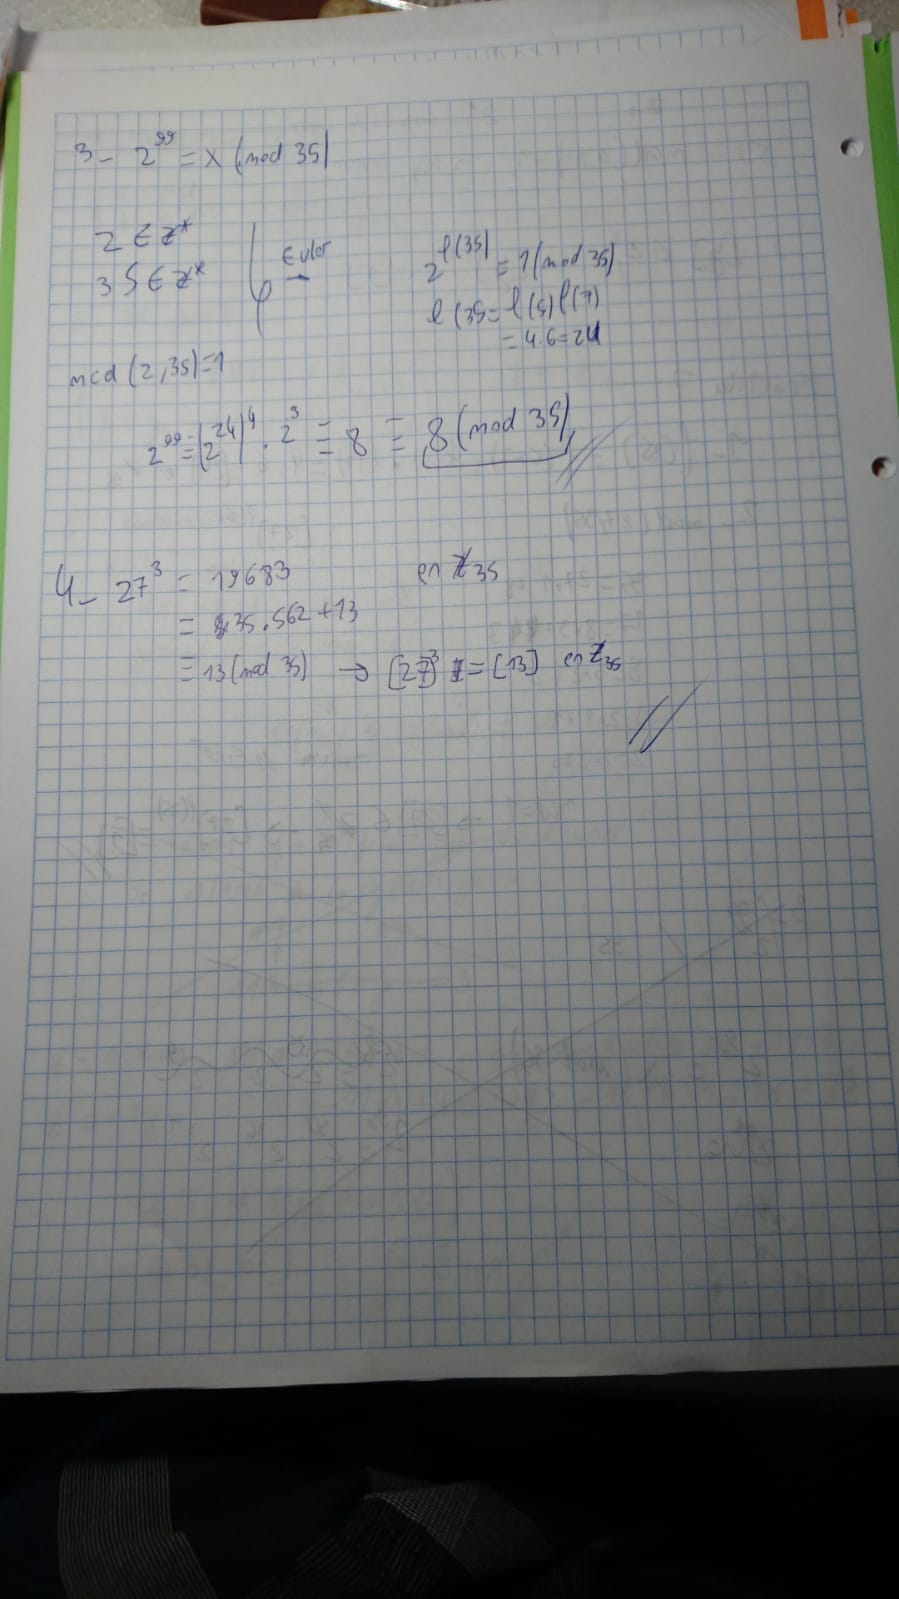 3- 2^99 = x (mod 35)
2 ∈ Z*
35 ∈ Z*
Euler
2^φ(35) = 1 (mod 35)
φ(35 = φ(5) φ(7)
= 4·6 = 24
mcd (2,35)=1
2^99 = (2^24)^4 · 2^3 ≡ 8 ≡ 8 (mod 35)
4- 27^3 = 19683 en Z35
= 35·562+13
= 13 (mod 35) → [27]^3 = [13] en Z35